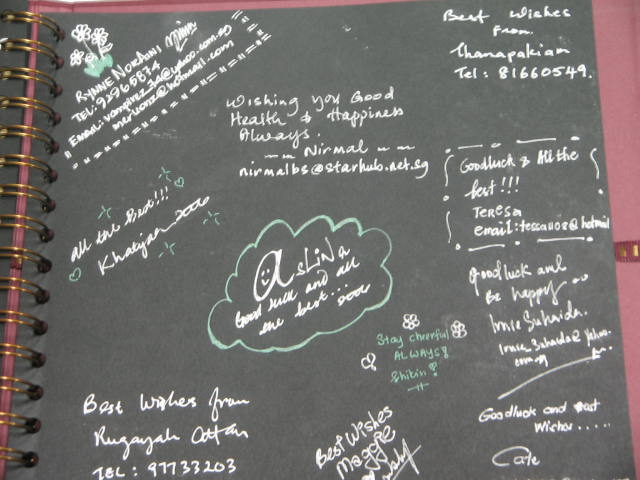 RYNNE NORDANI
TEL: 92965874
Email: vampirez_3a@yahoo.com.sg
@hotmail.com
Best Wishes
From
Thanapakiam
Tel: 81660549.
Wishing you Good
Health & Happiness
Always.
~~ Nirmal ~~
nirmalbs@starhub.net.sg
Goodluck & All the
best!!!
Teresa
email: tessa1108@hotmail
All the Best!!!
Khatijah
Aslina
Good luck and all
the best...
Goodluck and
Be happy
Irnie Suhaida.
Stay cheerful
ALWAYS!
Shikin!
Best Wishes from
Rugayah Attan
TEL: 97733203
Best Wishes
Maggie
Goodluck and Best
Wishes.....